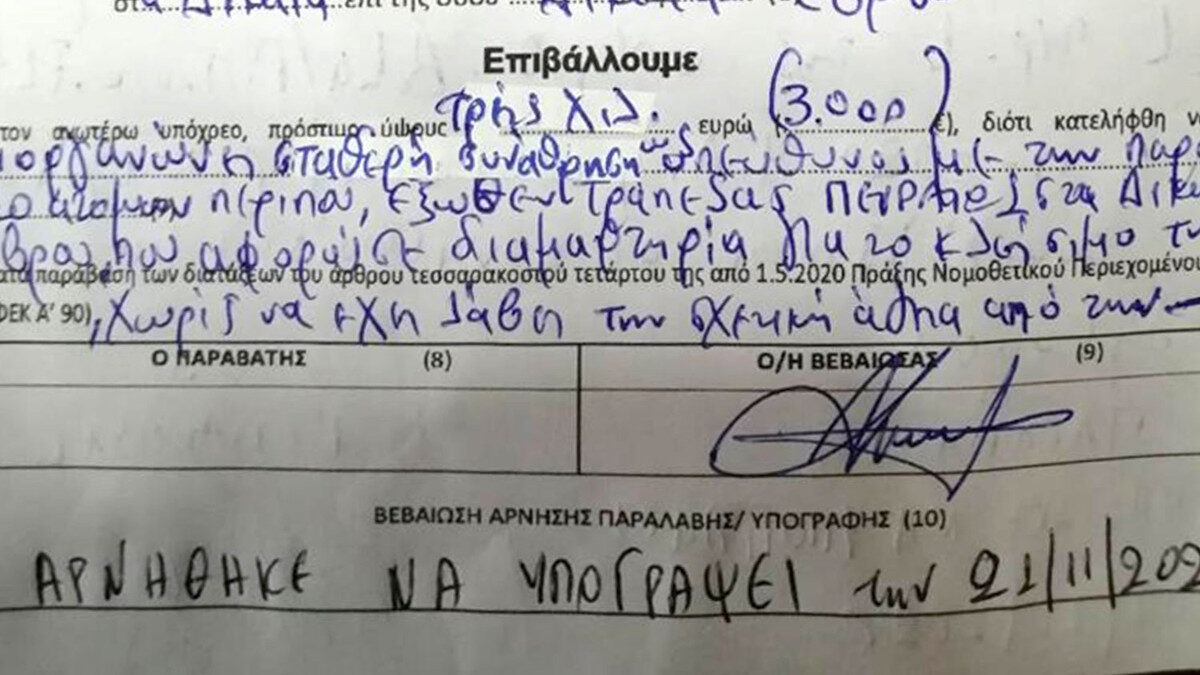 επί της οδού
Επιβάλλουμε
τον ανωτέρω υπόχρεο, πρόστιμο ύψους τρης χιλ. ευρώ (3.000 €), διότι κατελήφθη να
σταθερή συνάθρηση ως υπεύθυνος με την παρο
ατόμων περίπου, έξωθεν Τράπεζας Πειραιώς στα Δικα
που αφορούσε διαμαρτηρία για το κλήσιμο τη
ατά παράβαση των διατάξεων του άρθρου τεσσαρακοστού τετάρτου της από 1.5.2020 Πράξης Νομοθετικού Περιεχομένου
ΦΕΚ Α' 90), χωρίς να εχη λάβη την σχετική άδηα από την
Ο ΠΑΡΑΒΑΤΗΣ (8) Ο/Η ΒΕΒΑΙΩΣΑΣ (9)
ΒΕΒΑΙΩΣΗ ΑΡΝΗΣΗΣ ΠΑΡΑΛΑΒΗΣ/ ΥΠΟΓΡΑΦΗΣ (10)
ΑΡΝΗΘΗΚΕ ΝΑ ΥΠΟΓΡΑΨΕΙ την 21/11/202